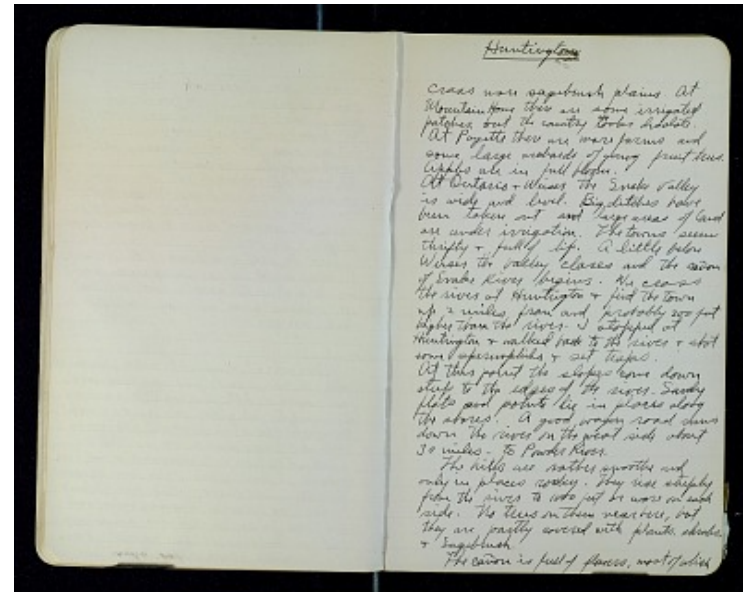 Huntington
cross more sagebrush plains. At
Mountain Home there are some irrigated
patches but the country looks
At Payette there are more farms and
some large orchards of young fruit trees.
Apples are in full bloom.
At Ontario + Weiser the Snake Valley
is wide and level. Big ditches have
been taken out and large areas of land
are under irrigation. The towns seem
thrifty + full of life. A little below
Weiser the valley closes and the cañon
of Snake River begins. We cross
the river at Huntington + find the town
up 2 miles from and probably 200 feet
higher than the river. I stopped at
Huntington + walked back to the river + shot
some spermophiles + set traps.
At this point the slopes come down
steep to the edges of the river. Sandy
flats and points lie in places along
the shores. A good wagon road runs
down the river on the west side about
30 miles - to Powder River.
The hills are rather smooth and
only in places rocky. They rise steeply
from the river to feet or more on each
side. No trees on them near here, but
they are partly covered with plants, shrubs
+ Sagebrush
The cañon is full of flowers, most of which